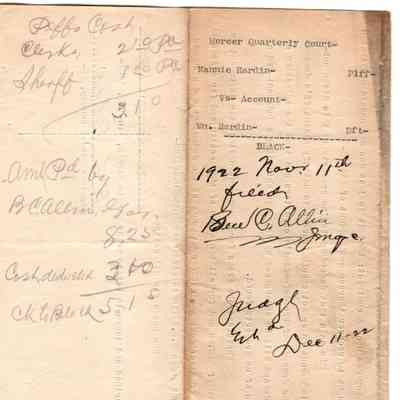 Piffs Cost,
Clerks, 2 10 Pd
Sheriff 1 00 Pd
3 10
Amt Pd by
B C Allin,
8.25
Cost deducted 3 10
Ck to Black 5.15
Mercer Quarterly Court-
Nannie Hardin- Piff-
Vs- Account-
Wm. Hardin- Dft-
BLACK-
1922 Nov. 11th
filed,
Ben C. Allin
Judge
Judg't
Dec 11-22